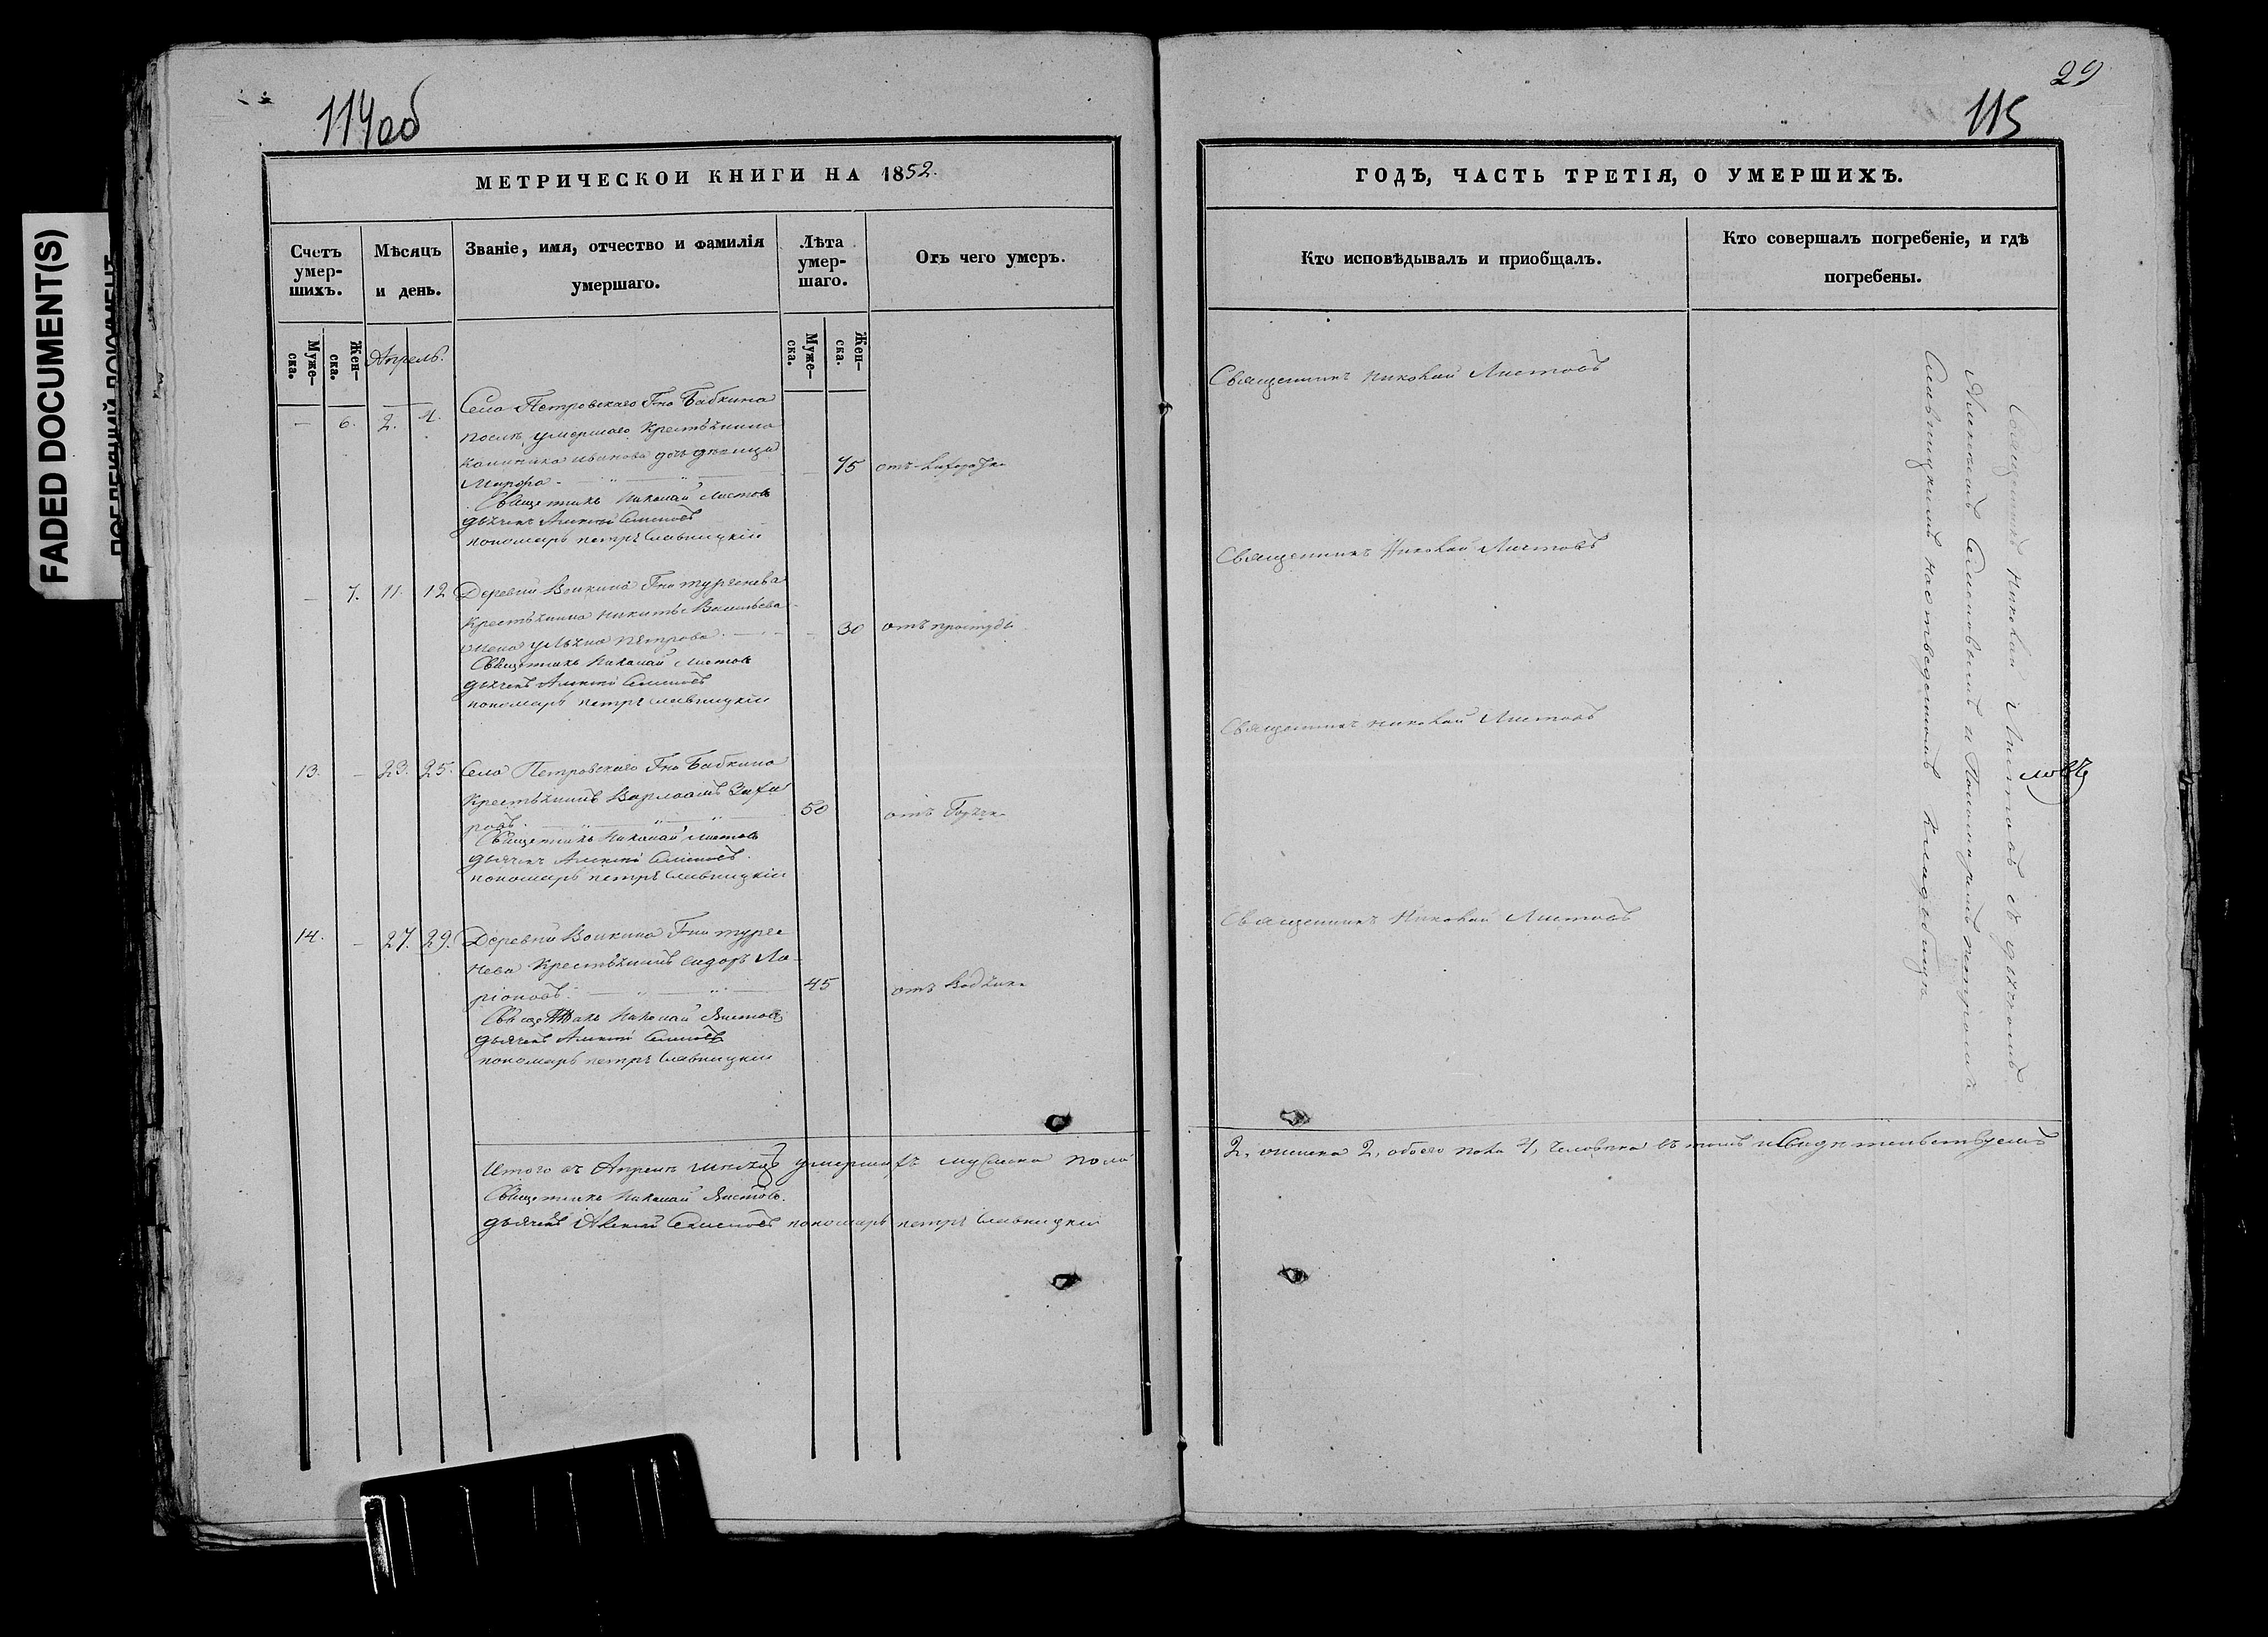 FADED DOCUMENT(S)
114об
МЕТРИЧЕСКОИ КНИГИ НА 1852.
Счетъ умер-шихъ.
Мѣсяцъ и день.
Званіе, имя, отчество и фамилія умершаго.
Лѣта умер-шаго.
Отъ чего умеръ.
Муже-ска.
Жен-ска.
Апрель.
Муже-ска.
Жен-ска.
Села Петровскаго Гна Бабкина
— 6. 2. 4.
после умершаго Крестьянина
Калиника Иванова дочь девица
75 отъ лихоратки
Священникъ Николай Листовъ
дьячекъ Алексей Семеновъ
пономарь петръ Славницкій
— 7. 11. 12 Деревни Воикина Гна тургенева
Крестьянина Никиты Васильева
жена Ульяна Петрова 30 отъ простуды
Священникъ Николай Листовъ
дьячекъ Алексей Семеновъ
пономарь петръ Славницкій
13. — 23. 25. Села Петровскаго Гна Бабкина
Крестьянинъ Варлаамъ Заха
ровъ. 50 отъ Горячки
Священникъ Николай Листовъ
дьячекъ Алексей Семеновъ
пономарь петръ Славницкій
14. — 27. 29. Деревни Воикина Гна турге
нева Крестьянинъ Сидоръ Ла-
ріоновъ. 45 отъ Водянки
Священникъ Николай Листовъ
дьячекъ Алексей Семеновъ
пономарь петръ Славницкій
Итого въ Апреле месяце умершихъ мужеска пола
Священникъ Николай Листовъ.
дьячекъ Алексей Семеновъ пономарь петръ Славницкій
29
115
ГОДѢ, ЧАСТЬ ТРЕТІЯ, О УМЕРШИХЪ.
Кто исповѣдывалъ и приобщалъ.
Кто совершалъ погребеніе, и гдѣ погребены.
Священникъ Николай Листовъ
Священникъ Николай Листовъ
Священникъ Николай Листовъ
Священникъ Николай Листовъ
Священникъ Николай Листовъ съ дьячкомъ
Алексеемъ Семеновымъ и Пономаремъ петромъ
Славницкимъ на отведенномъ кладбище
2, женска 2, обоего пола 4, человека въ томъ и Свидетельствуемъ